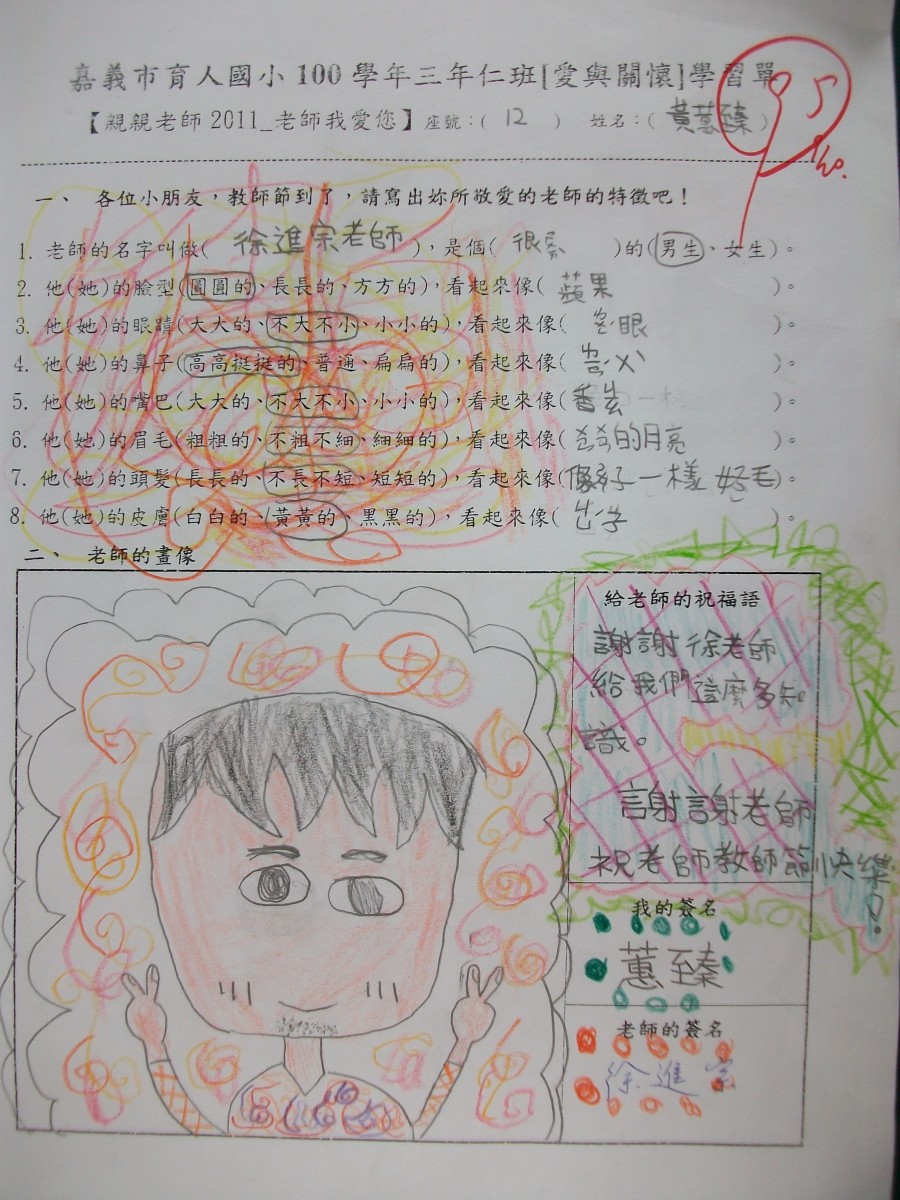 嘉義市育人國小100學年三年仁班[愛與關懷]學習單
【親親老師2011_老師我愛您】座號:( 12 ) 姓名:( 黃蕙臻 )
一、 各位小朋友,教師節到了,請寫出妳所敬愛的老師的特徵吧!
1. 老師的名字叫做( 徐進宗老師 ),是個( 很 )的(男生、女生)。
2. 他(她)的臉型(圓圓的、長長的、方方的),看起來像( 蘋果 )。
3. 他(她)的眼睛(大大的、不大不小、小小的),看起來像( 眼 )。
4. 他(她)的鼻子(高高挺挺的、普通、扁扁的),看起來像( )。
5. 他(她)的嘴巴(大大的、不大不小、小小的),看起來像( 香 )。
6. 他(她)的眉毛(粗粗的、不粗不細、細細的),看起來像( 的月亮 )。
7. 他(她)的頭髮(長長的、不長不短、短短的),看起來像( 一樣 毛)。
8. 他(她)的皮膚(白白的、黃黃的、黑黑的),看起來像( )。
二、 老師的畫像
給老師的祝福語
謝謝徐老師
給我們這麼多知
識。
謝謝老師
祝老師教師節快樂!
我的簽名
蕙臻
老師的簽名
徐進宗